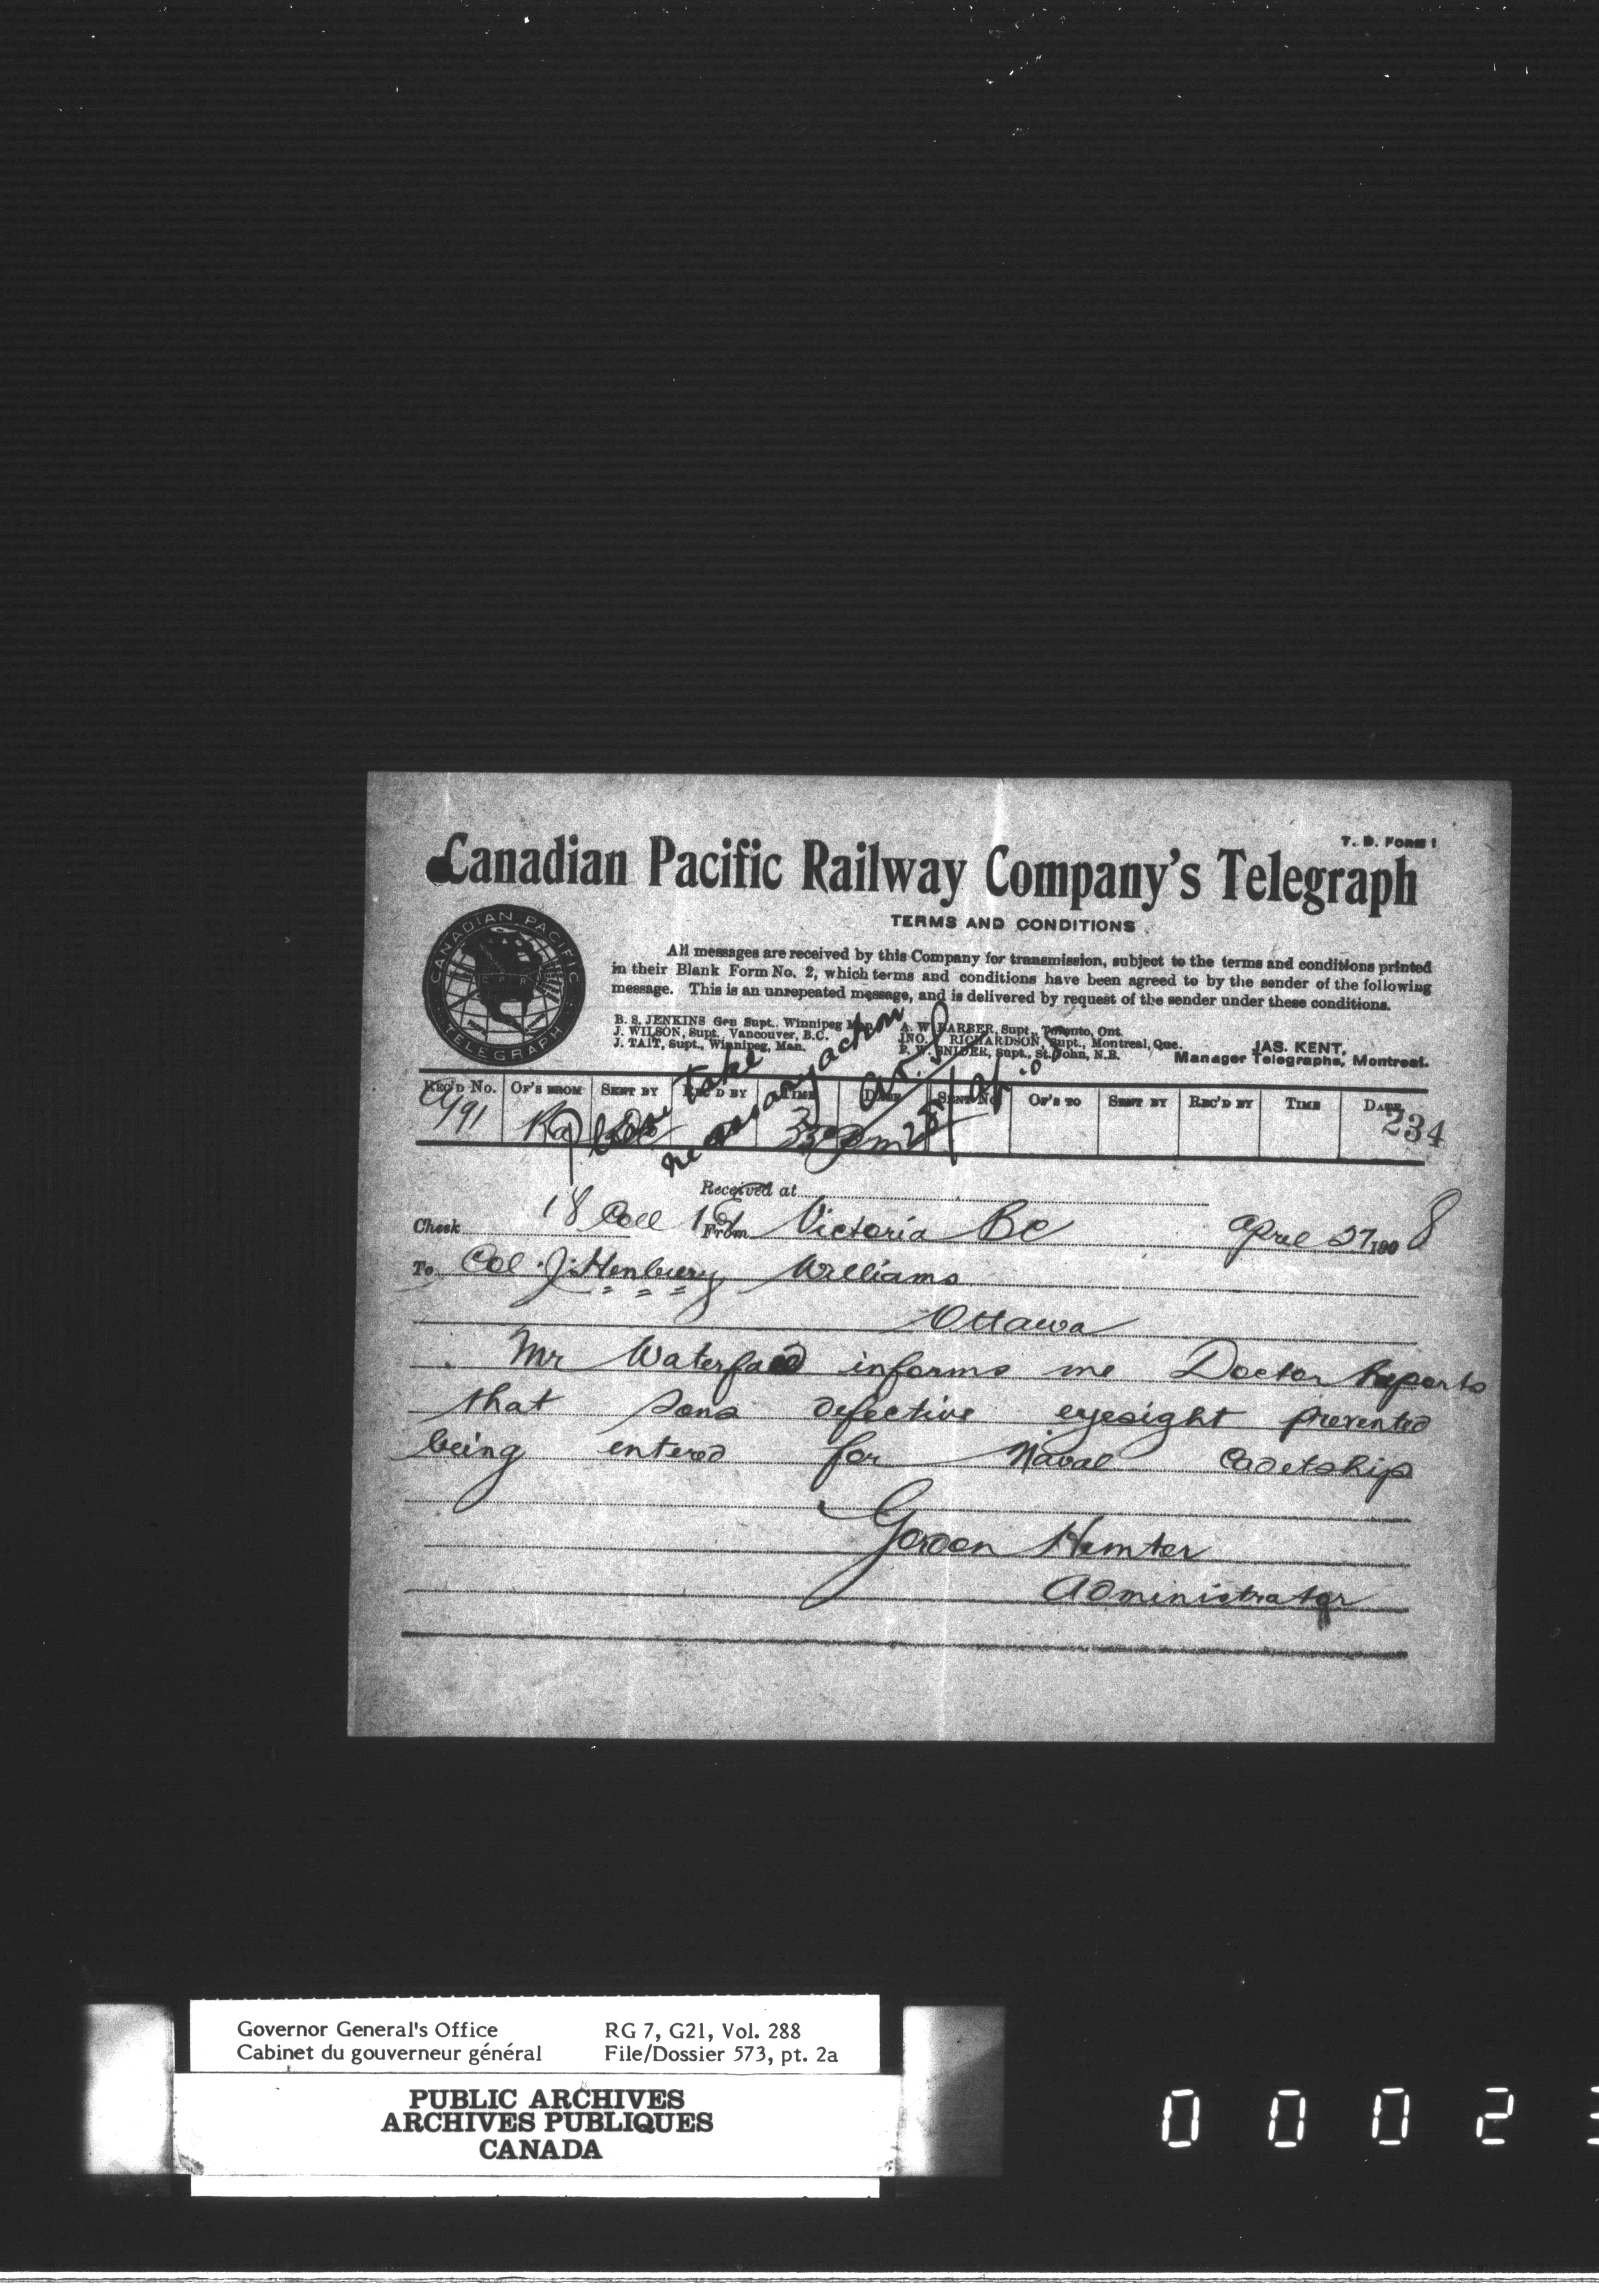 T. D. FORM 1
Canadian Pacific Railway Company's Telegraph
TERMS AND CONDITIONS
CANADIAN PACIFIC
TELEGRAPH
All messages are received by this Company for transmission, subject to the terms and conditions printed
in their Blank Form No. 2, which terms and conditions have been agreed to by the sender of the following
message. This is an unrepeated message, and is delivered by request of the sender under these conditions.
B. S. JENKINS Gen Supt., Winnipeg Man.
J. WILSON, Supt., Vancouver, B.C.
J. TAIT, Supt., Winnipeg, Man.
A. W. BARBER, Supt., Toronto, Ont.
JNO. RICHARDSON, Supt., Montreal, Que.
P. W. SNIDER, Supt., St. John, N.B.
JAS. KENT,
Manager Telegraphs, Montreal.
take
necessary action
REC'D No. OF'S FROM SENT BY REC'D BY TIME DATE SENT No. OF'S TO SENT BY REC'D BY TIME DATE
234
Received at
Check 18 Coll From Victoria BC April 27 1908
To Col. J. Henbury Williams
Ottawa
Mr Waterfaed informs me Doctor Reports
that sons defective eyesight prevented
being entered for Naval Cadetship
Gordon Hunter
Administrator
Governor General's Office RG 7, G21, Vol. 288
Cabinet du gouverneur général File/Dossier 573, pt. 2a
PUBLIC ARCHIVES
ARCHIVES PUBLIQUES
CANADA
0 0 0 2